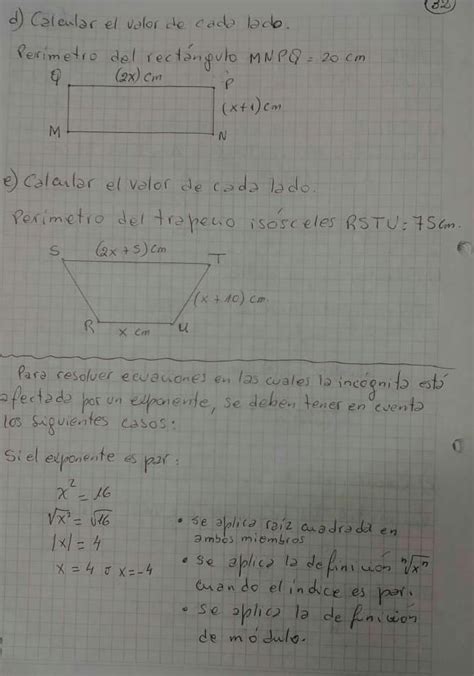 32
d) Calcular el valor de cada lado.
Perímetro del rectángulo MNPQ = 20 cm
Q (2x) cm P
(x+1) cm
M N
e) Calcular el valor de cada lado.
Perímetro del trapecio isósceles RSTU: 75cm.
S (2x+5) cm T
(x+10) cm
R x cm U
Para resolver ecuaciones en las cuales la incógnita está
afectada por un exponente, se deben tener en cuenta
los siguientes casos:
Si el exponente es par:
x² = 16
√x² = √16
|x| = 4
x = 4 ó x = -4
• se aplica raíz cuadrada en
ambos miembros
• se aplica la definición ⁿ√xⁿ
cuando el índice es par.
• se aplica la definición
de módulo.